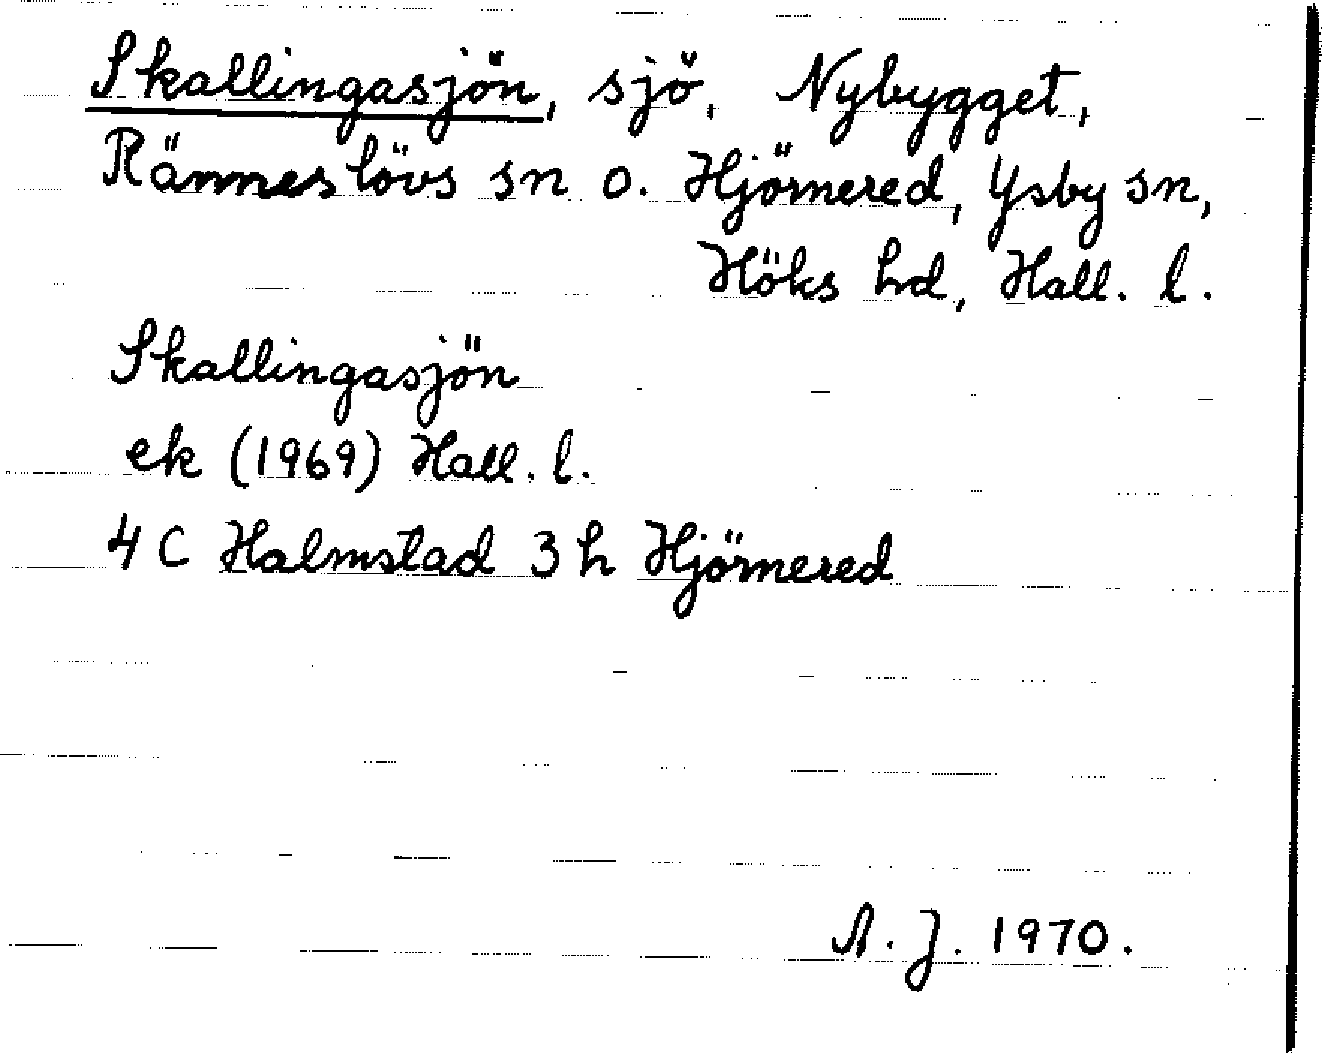 Skallingasjön, sjö, Nybygget,
Ränneslövs sn o. Hjörnered, Ysby sn,
Höks hd, Hall. l.
Skallingasjön
ek (1969) Hall. l.
4 C Halmstad 3 h Hjörnered
A. J. 1970.